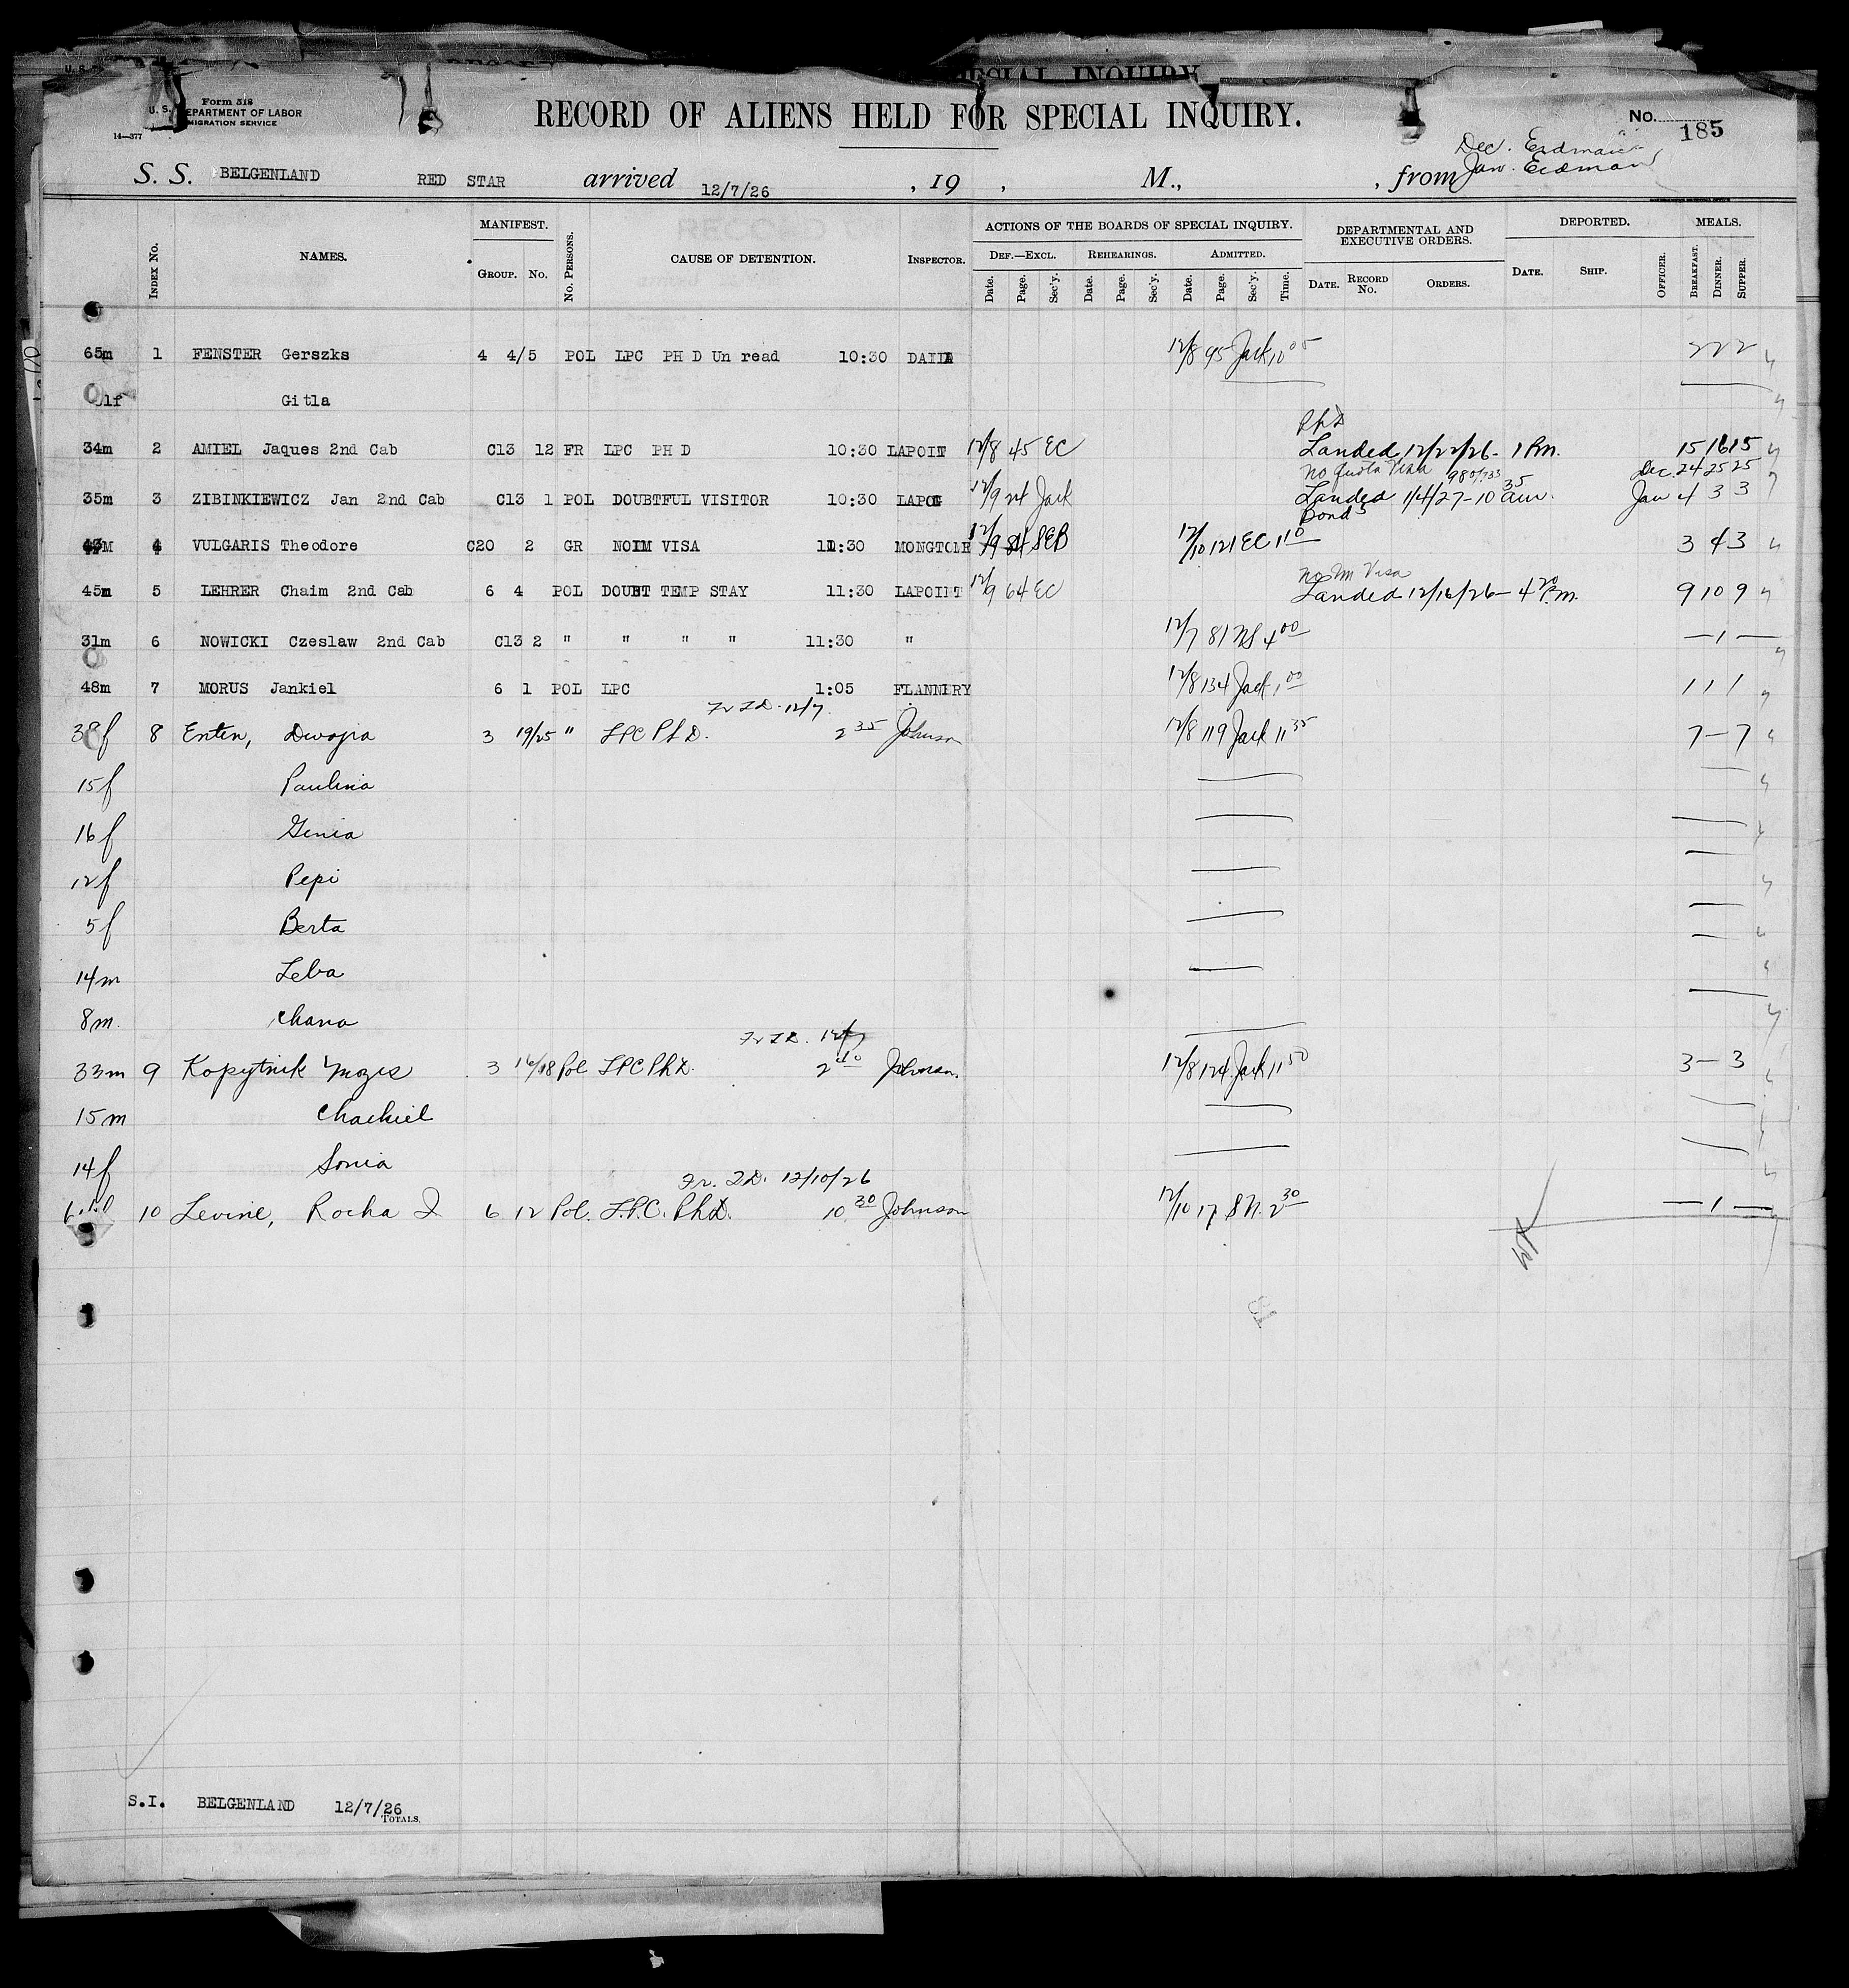 SPECIAL INQUIRY
Form 518
U. S. DEPARTMENT OF LABOR
IMMIGRATION SERVICE
14—377
RECORD OF ALIENS HELD FOR SPECIAL INQUIRY.
No. 185
Dec. Erdman
Jan. Erdman
S. S. BELGENLAND RED STAR arrived 12/7/26 , 19 , M., , from
INDEX No. NAMES. MANIFEST. GROUP. No. No. PERSONS. CAUSE OF DETENTION. INSPECTOR. ACTIONS OF THE BOARDS OF SPECIAL INQUIRY. DEF.—EXCL. REHEARINGS. ADMITTED. DEPARTMENTAL AND EXECUTIVE ORDERS. DEPORTED. MEALS.
Date. Page. Sec'y. Date. Page. Sec'y. Date. Page. Sec'y. Time. DATE. RECORD No. ORDERS. DATE. SHIP. OFFICER. BREAKFAST. DINNER. SUPPER.
65m 1 FENSTER Gerszks 4 4/5 POL LPC PH D Un read 10:30 12/8 95 Jack 10 05 2 2 2
Gitla
Ph D
34m 2 AMIEL Jaques 2nd Cab C13 12 FR LPC PH D 10:30 LAPOIT 12/8 45 EC Landed 12/22/26 - 1 Pm. 15 16 15
No Quota Visa Dec. 24 25 25
35m 3 ZIBINKIEWICZ Jan 2nd Cab C13 1 POL DOUBTFUL VISITOR 10:30 12/9 24 Jack Landed 1/4/27 - 10 35 am. Jan 4 3 3
Bond
4 VULGARIS Theodore C20 2 GR NOIM VISA 11:30 MONGTOME 12/9 84 SEB 12/10 121 EC 11 0 3 4 3
No Im Visa
45m 5 LEHRER Chaim 2nd Cab 6 4 POL DOUBT TEMP STAY 11:30 LAPOINT 12/9 64 EC Landed 12/16/26 - 4 20 P.m. 9 10 9
31m 6 NOWICKI Czeslaw 2nd Cab C13 2 " " " " 11:30 " 12/7 81 NS 4 00 — 1 —
48m 7 MORUS Jankiel 6 1 POL LPC 1:05 FLANNERY 12/8 134 Jack 1 00 1 1 1
Fr T.D. 12/7
38f 8 Enten, Dwojra 3 19/25 " LPC Ph D. 2 35 Johnson 12/8 119 Jack 11 35 7 — 7
15f Paulina
16f Genia
12f Pepi
5f Berta
14m Leba
8m. Chana
Fr T.D. 12/7
33m 9 Kopytnik Mozes 3 16/18 Pol LPC Ph D. 2 40 Johnson. 12/8 124 Jack 11 50 3 — 3
15m Chackiel
14f Sonia
Fr. T.D. 12/10/26
10 Levine, Rocha I 6 12 Pol. L.P.C. Ph D. 10 30 Johnson 12/10 17 SN. 2 30 — 1 —
S.I. BELGENLAND 12/7/26
TOTALS.